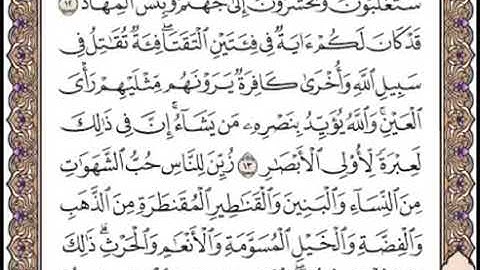 سَتُغْلَبُونَ وَتُحْشَرُونَ إِلَىٰ جَهَنَّمَ وَبِئْسَ الْمِهَادُ ١٢
قَدْ كَانَ لَكُمْ ءَايَةٌ فِى فِئَتَيْنِ الْتَقَتَا ۖ فِئَةٌ تُقَٰتِلُ فِى
سَبِيلِ اللَّهِ وَأُخْرَىٰ كَافِرَةٌ يَرَوْنَهُم مِّثْلَيْهِمْ رَأْىَ
الْعَيْنِ ۚ وَاللَّهُ يُؤَيِّدُ بِنَصْرِهِۦ مَن يَشَآءُ ۗ إِنَّ فِى ذَٰلِكَ
لَعِبْرَةً لِّأُو۟لِى الْأَبْصَٰرِ ١٣ زُيِّنَ لِلنَّاسِ حُبُّ الشَّهَوَٰتِ
مِنَ النِّسَآءِ وَالْبَنِينَ وَالْقَنَٰطِيرِ الْمُقَنطَرَةِ مِنَ الذَّهَبِ
وَالْفِضَّةِ وَالْخَيْلِ الْمُسَوَّمَةِ وَالْأَنْعَٰمِ وَالْحَرْثِ ۗ ذَٰلِكَ